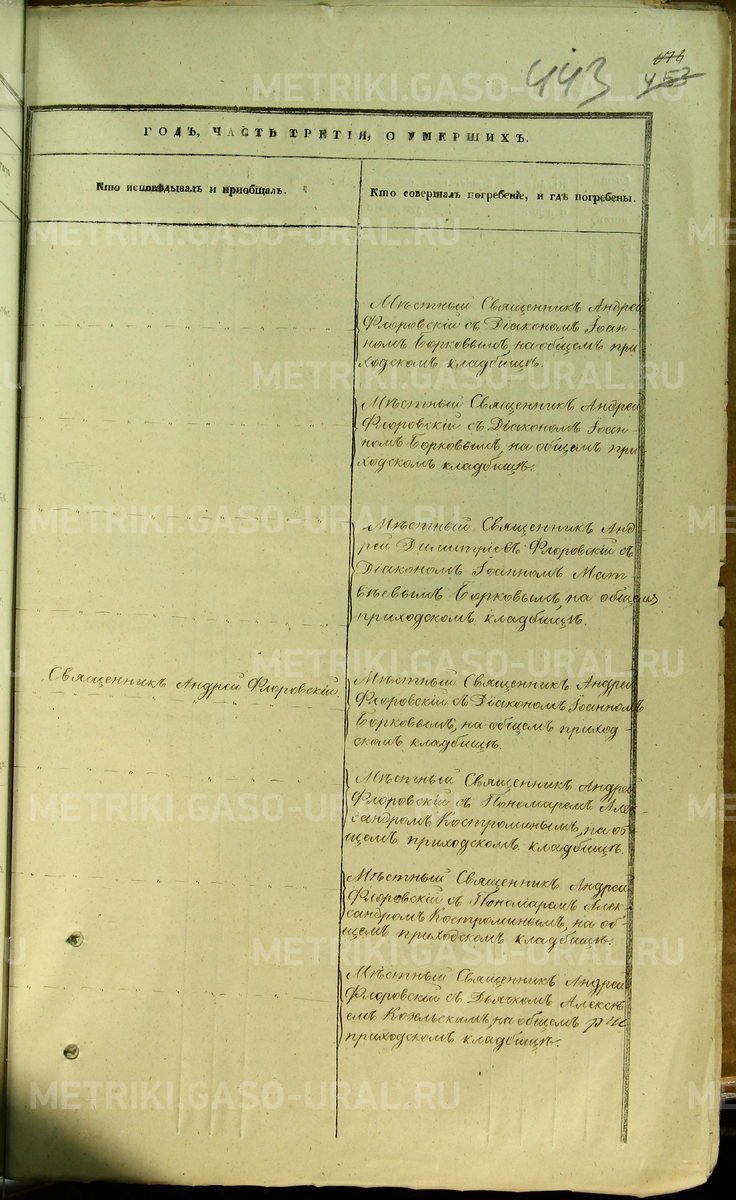 443
453
ГОДЪ, ЧАСТЬ ТРЕТІЯ, О УМЕРШИХЪ.
Кто исповѣдывалъ и приобщалъ.
Кто совершалъ погребеніе, и гдѣ погребены.
Мѣстный Священникъ Андрей
Флоровскій съ Діакономъ Іоан-
номъ Борковымъ, на общемъ при
ходскомъ кладбищѣ.
Мѣстный Священникъ Андрей
Флоровскій съ Діакономъ Іоан-
номъ Борковымъ, на общемъ при
ходскомъ кладбищѣ.
Мѣстный Священникъ Анд-
рей Димитріевъ Флоровскій съ
Діакономъ Іоанномъ Мат
вѣевымъ Борковымъ, на общемъ
приходскомъ кладбищѣ.
Священникъ Андрей Флоровскій.
Мѣстный Священникъ Андрей
Флоровскій съ Діакономъ Іоанномъ
Борковымъ, на общемъ приход-
скомъ кладбищѣ.
Мѣстный Священникъ Андрей
Флоровскій съ Пономаремъ Алек
сандромъ Костроминымъ, на об-
щемъ приходскомъ кладбищѣ.
Мѣстный Священникъ Андрей
Флоровскій съ Пономаремъ Алек-
сандромъ Костроминымъ, на об-
щемъ приходскомъ кладбищѣ.
Мѣстный Священникъ Андрей
Флоровскій съ Дьячкомъ Алексѣ-
емъ Козельскимъ, на общемъ
приходскомъ кладбищѣ.
METRIKI.GASO-URAL.RU